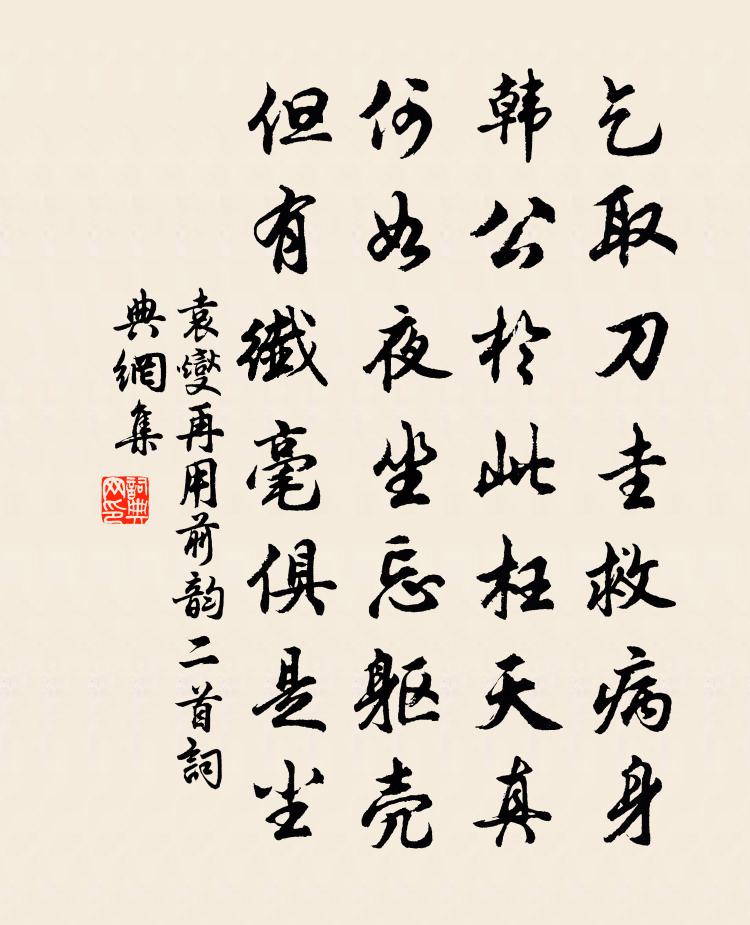 乞取刀圭救病身
韩公於此枉天真
何如夜坐忘躯壳
但有纖毫俱是尘
袁燮再用前韵二首詞
典網集
詞典网印